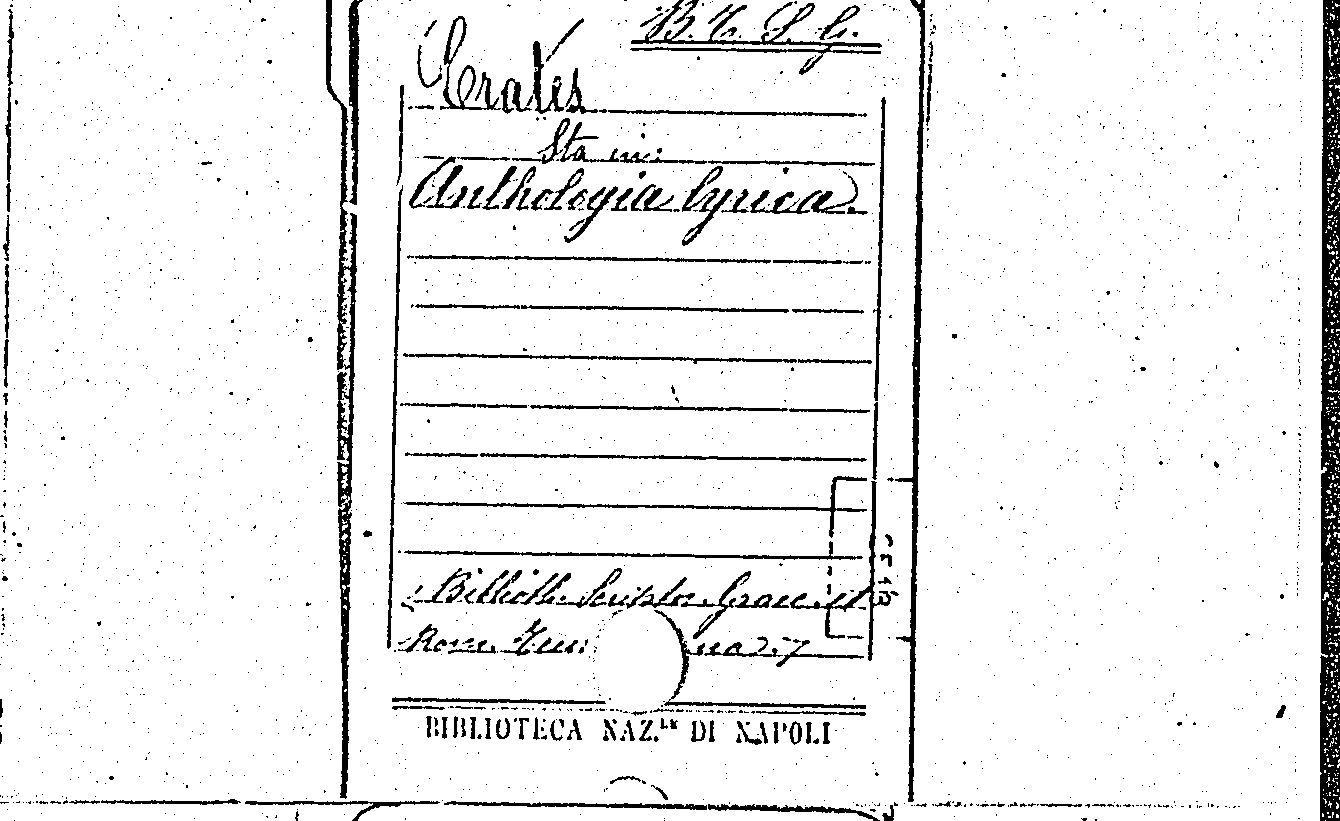 B. T. S. G.
Crates
Sta in:
Anthologia lyrica.
(Biblioth. Scriptor. Graec. et
Rom. Teu na) 7
BIBLIOTECA NAZ.LE DI NAPOLI